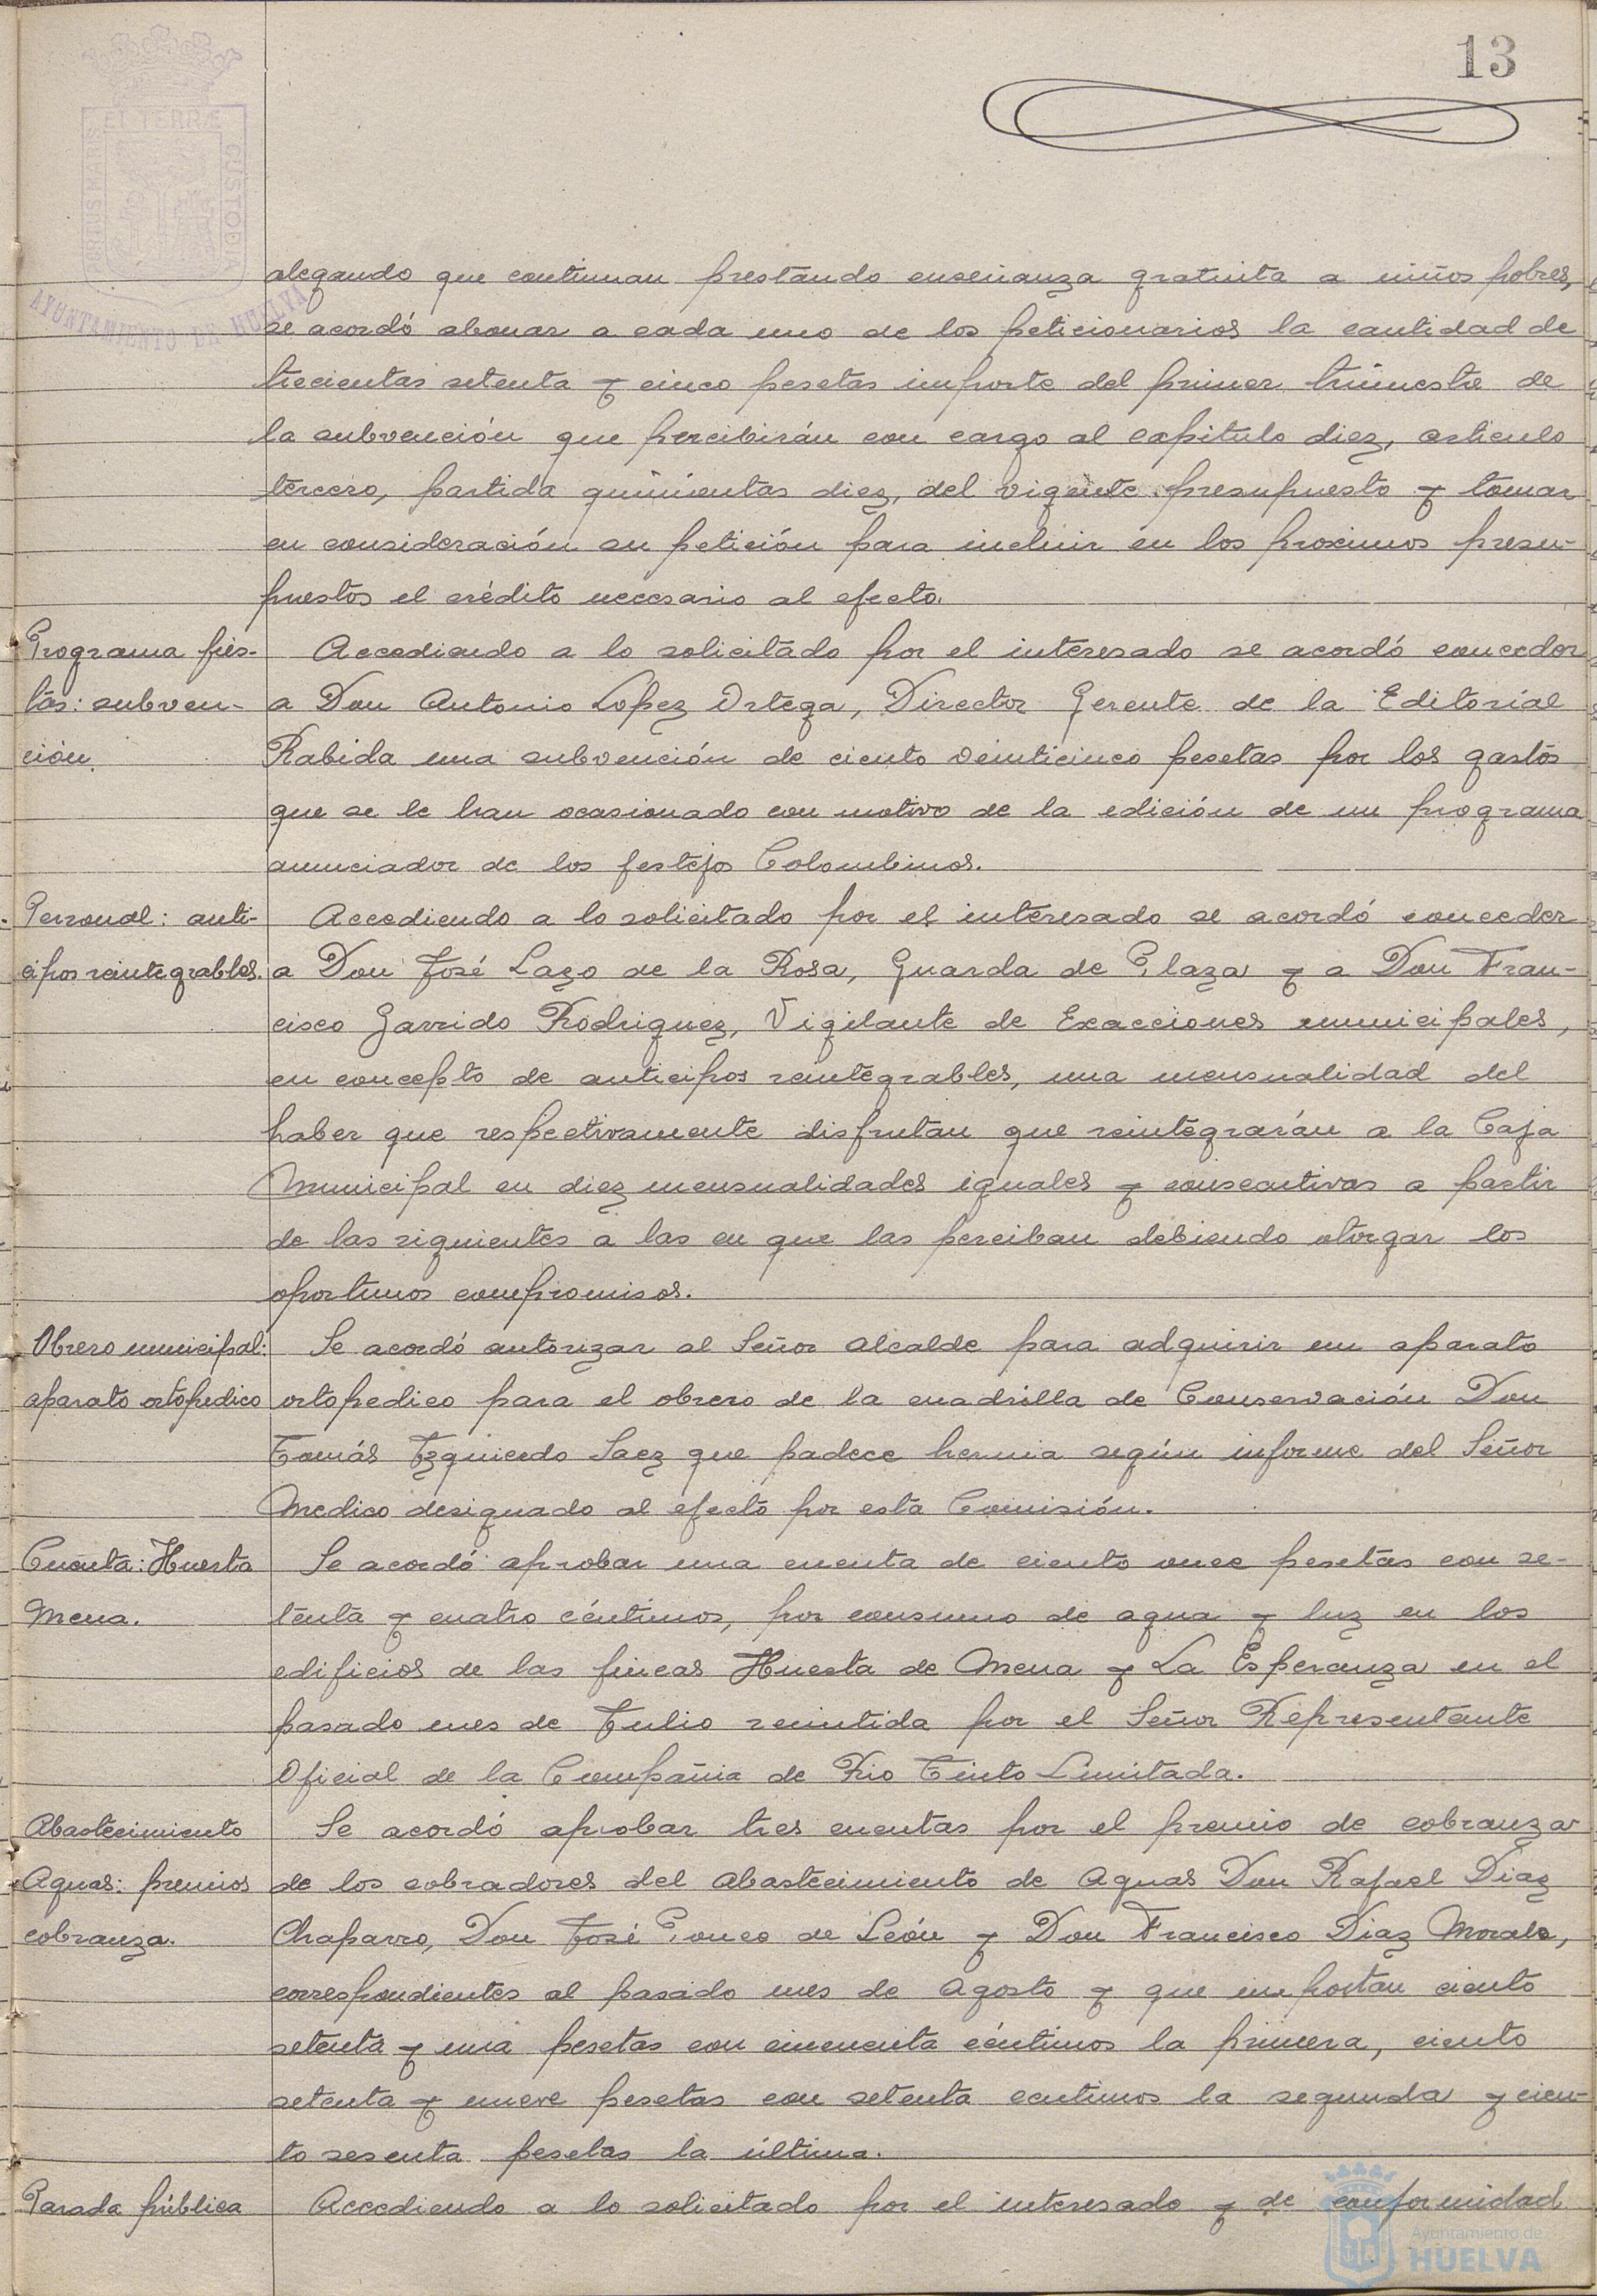 13
ET TERRÆ
PORTUS MARIS
CUSTODIA
AYUNTAMIENTO DE HUELVA
alegando que continuan prestando enseñanza gratuita a niños pobres,
se acordó abonar a cada uno de los peticionarios la cantidad de
trecientas setenta y cinco pesetas importe del primer trimestre de
la subvención que percibirán con cargo al capitulo diez, articulo
tercero, partida quinientas diez, del vigente presupuesto y tomar
en consideración su petición para incluir en los proximos presu-
puestos el crédito necesario al efecto.
Programa fies-
tas: subven-
ción.
Accediendo a lo solicitado por el interesado se acordó conceder
a Don Antonio Lopez Ortega, Director Gerente de la Editorial
Rabida una subvención de ciento veinticinco pesetas por los gastos
que se le han ocasionado con motivo de la edición de un programa
anunciador de los festejos Colombinos.
Personal: anti-
cipos reintegrables.
Accediendo a lo solicitado por el interesado se acordó conceder
a Don José Lazo de la Rosa, Guarda de Plaza y a Don Fran-
cisco Garrido Rodriguez, Vigilante de Exacciones municipales,
en concepto de anticipos reintegrables, una mensualidad del
haber que respectivamente disfrutan que reintegrarán a la Caja
Municipal en diez mensualidades iguales y consecutivas a partir
de las siguientes a las en que las perciban debiendo otorgar los
oportunos compromisos.
Obrero municipal:
aparato ortopedico
Se acordó autorizar al Señor Alcalde para adquirir un aparato
ortopedico para el obrero de la cuadrilla de Conservación Don
Tomás Izquierdo Saez que padece hernia según informe del Señor
Medico designado al efecto por esta Comisión.
Cuenta: Huerta
Mena.
Se acordó aprobar una cuenta de ciento once pesetas con se-
tenta y cuatro céntimos, por consumo de agua y luz en los
edificios de las fincas Huerta de Mena y La Esperanza en el
pasado mes de Julio remitida por el Señor Representante
Oficial de la Compañia de Rio Tinto Limitada.
Abastecimiento
Aguas: premios
cobranza.
Se acordó aprobar tres cuentas por el premio de cobranza
de los cobradores del Abastecimiento de Aguas Don Rafael Diaz
Chaparro, Don José Ponce de León y Don Francisco Diaz Morale,
correspondientes al pasado mes de Agosto y que importan ciento
setenta y una pesetas con cincuenta céntimos la primera, ciento
setenta y nueve pesetas con setenta centimos la segunda y cien-
to sesenta pesetas la última.
Parada pública
Accediendo a lo solicitado por el interesado y de conformidad
Ayuntamiento de
HUELVA